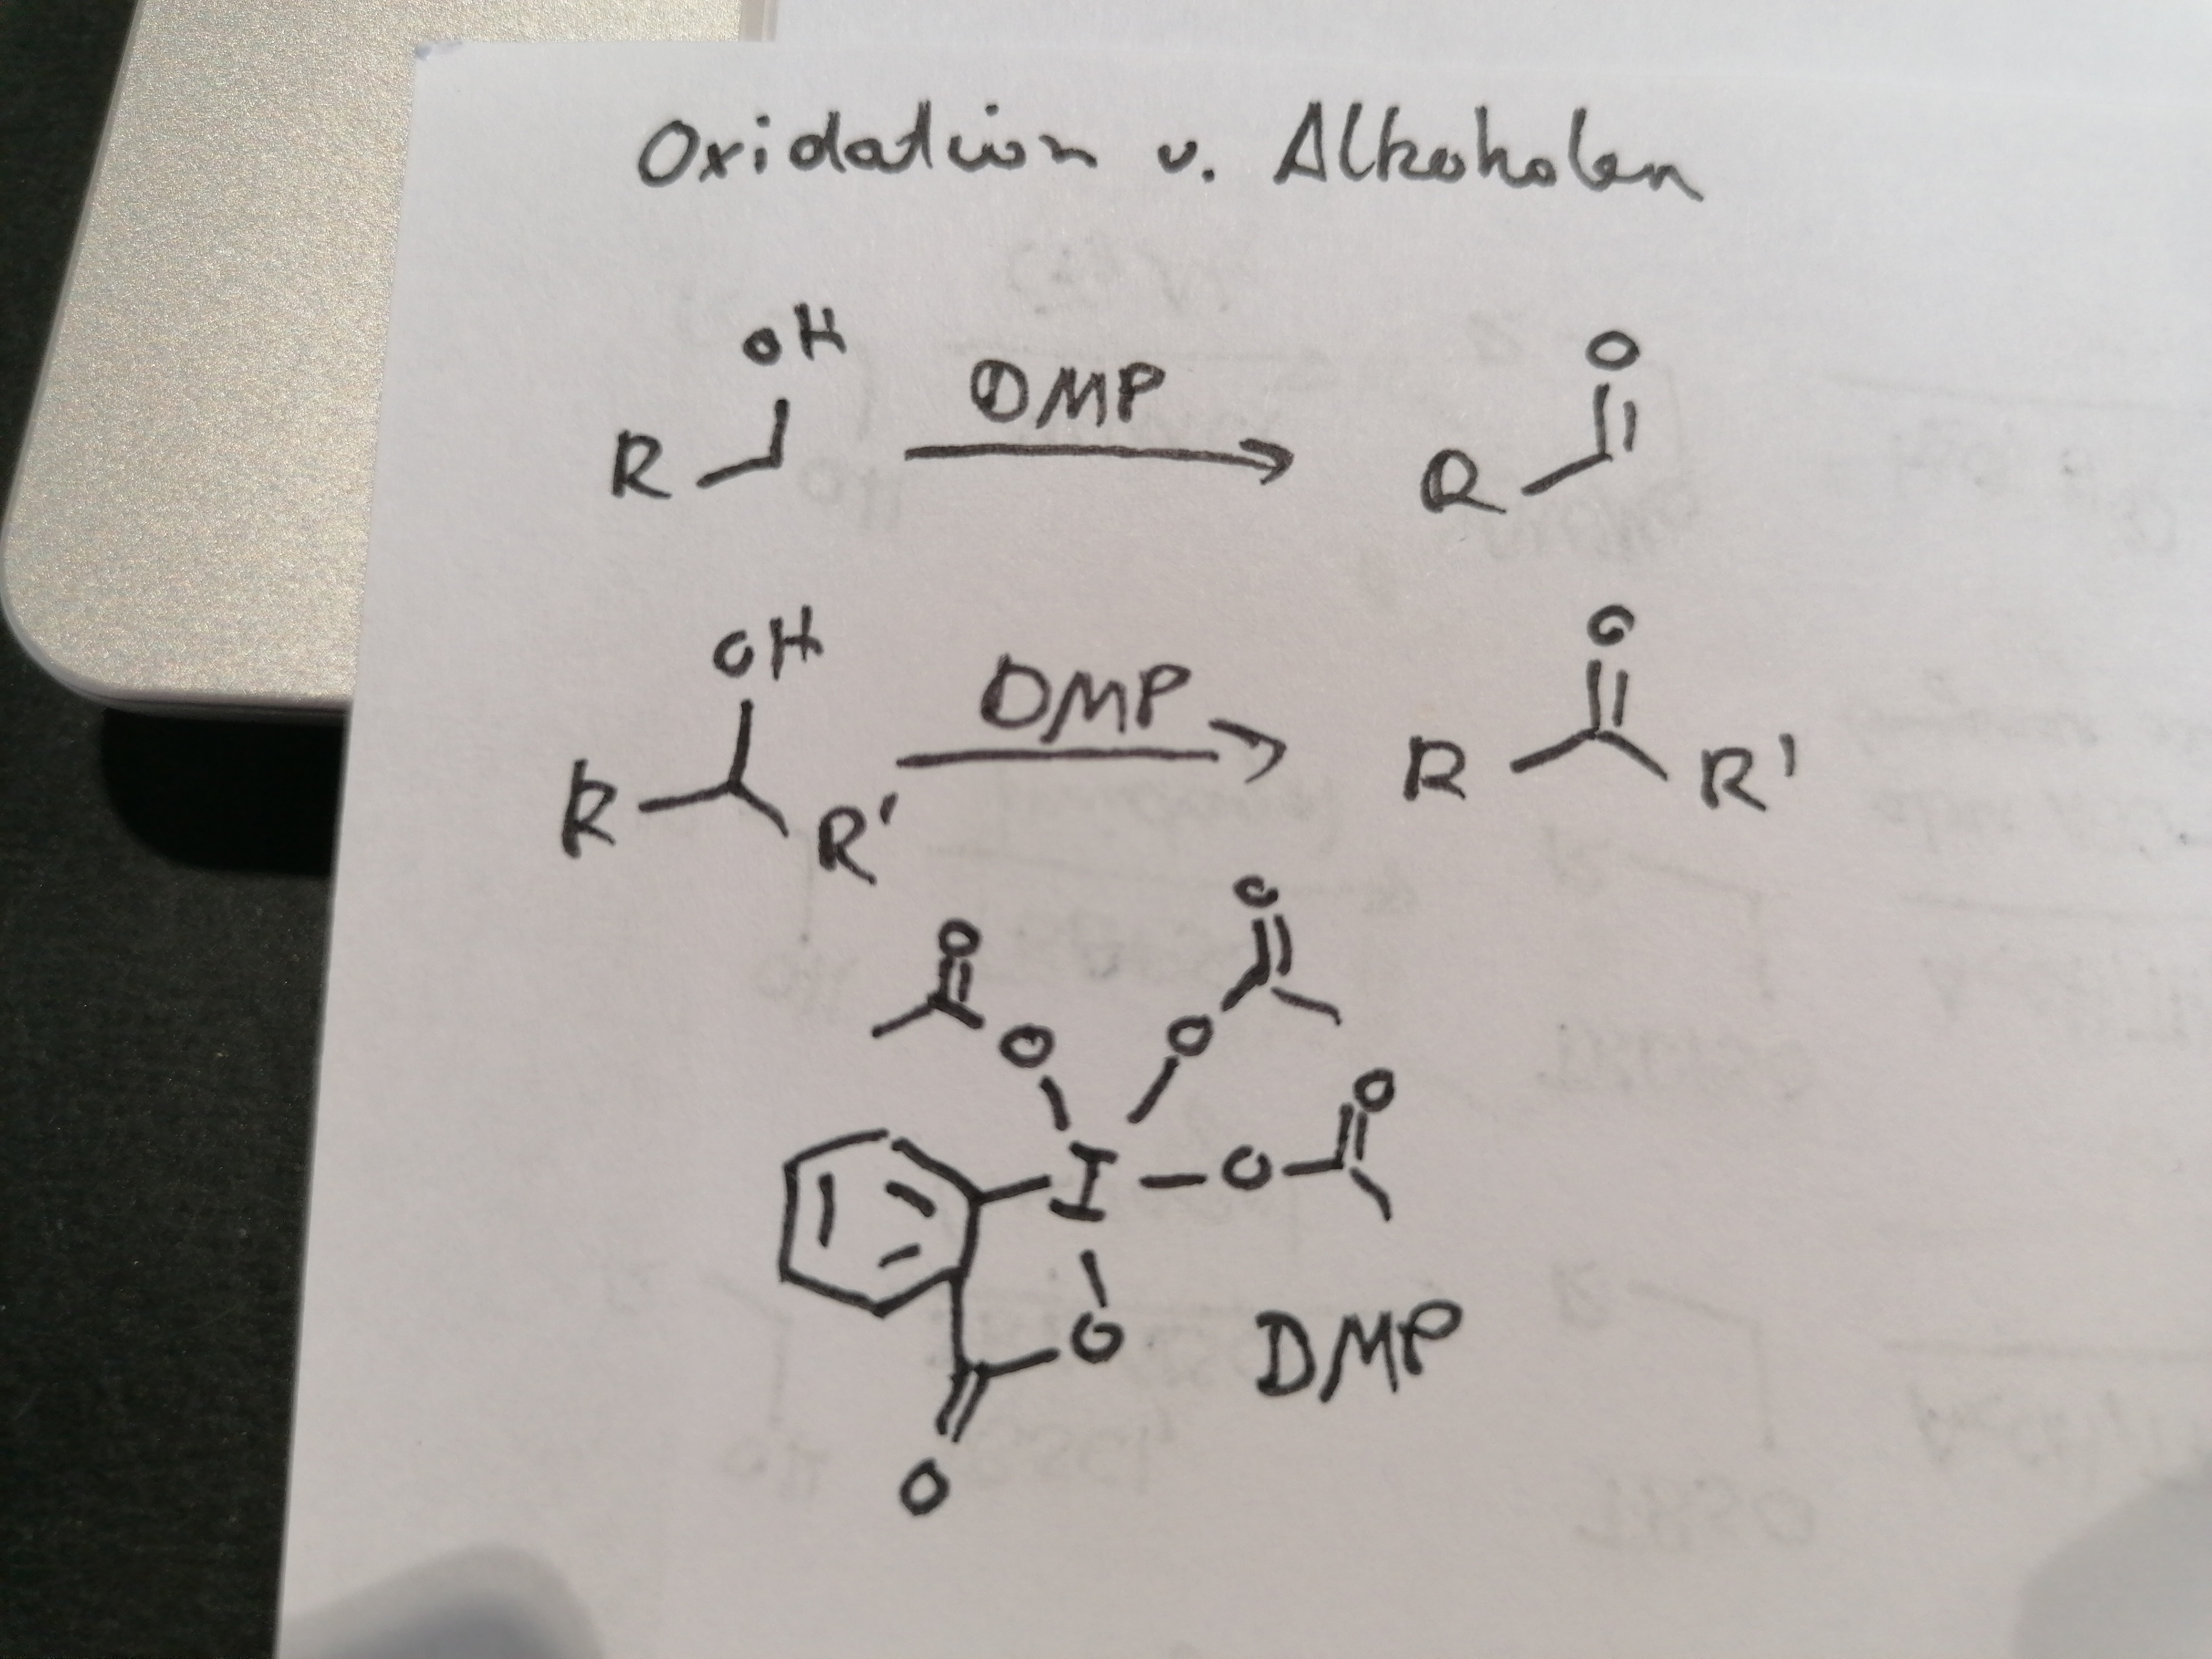 Oxidation v. Alkoholen
OH
R DMP O
R
OH
R R' DMP O
R R'
O O
O O O
I O
O
O
DMP